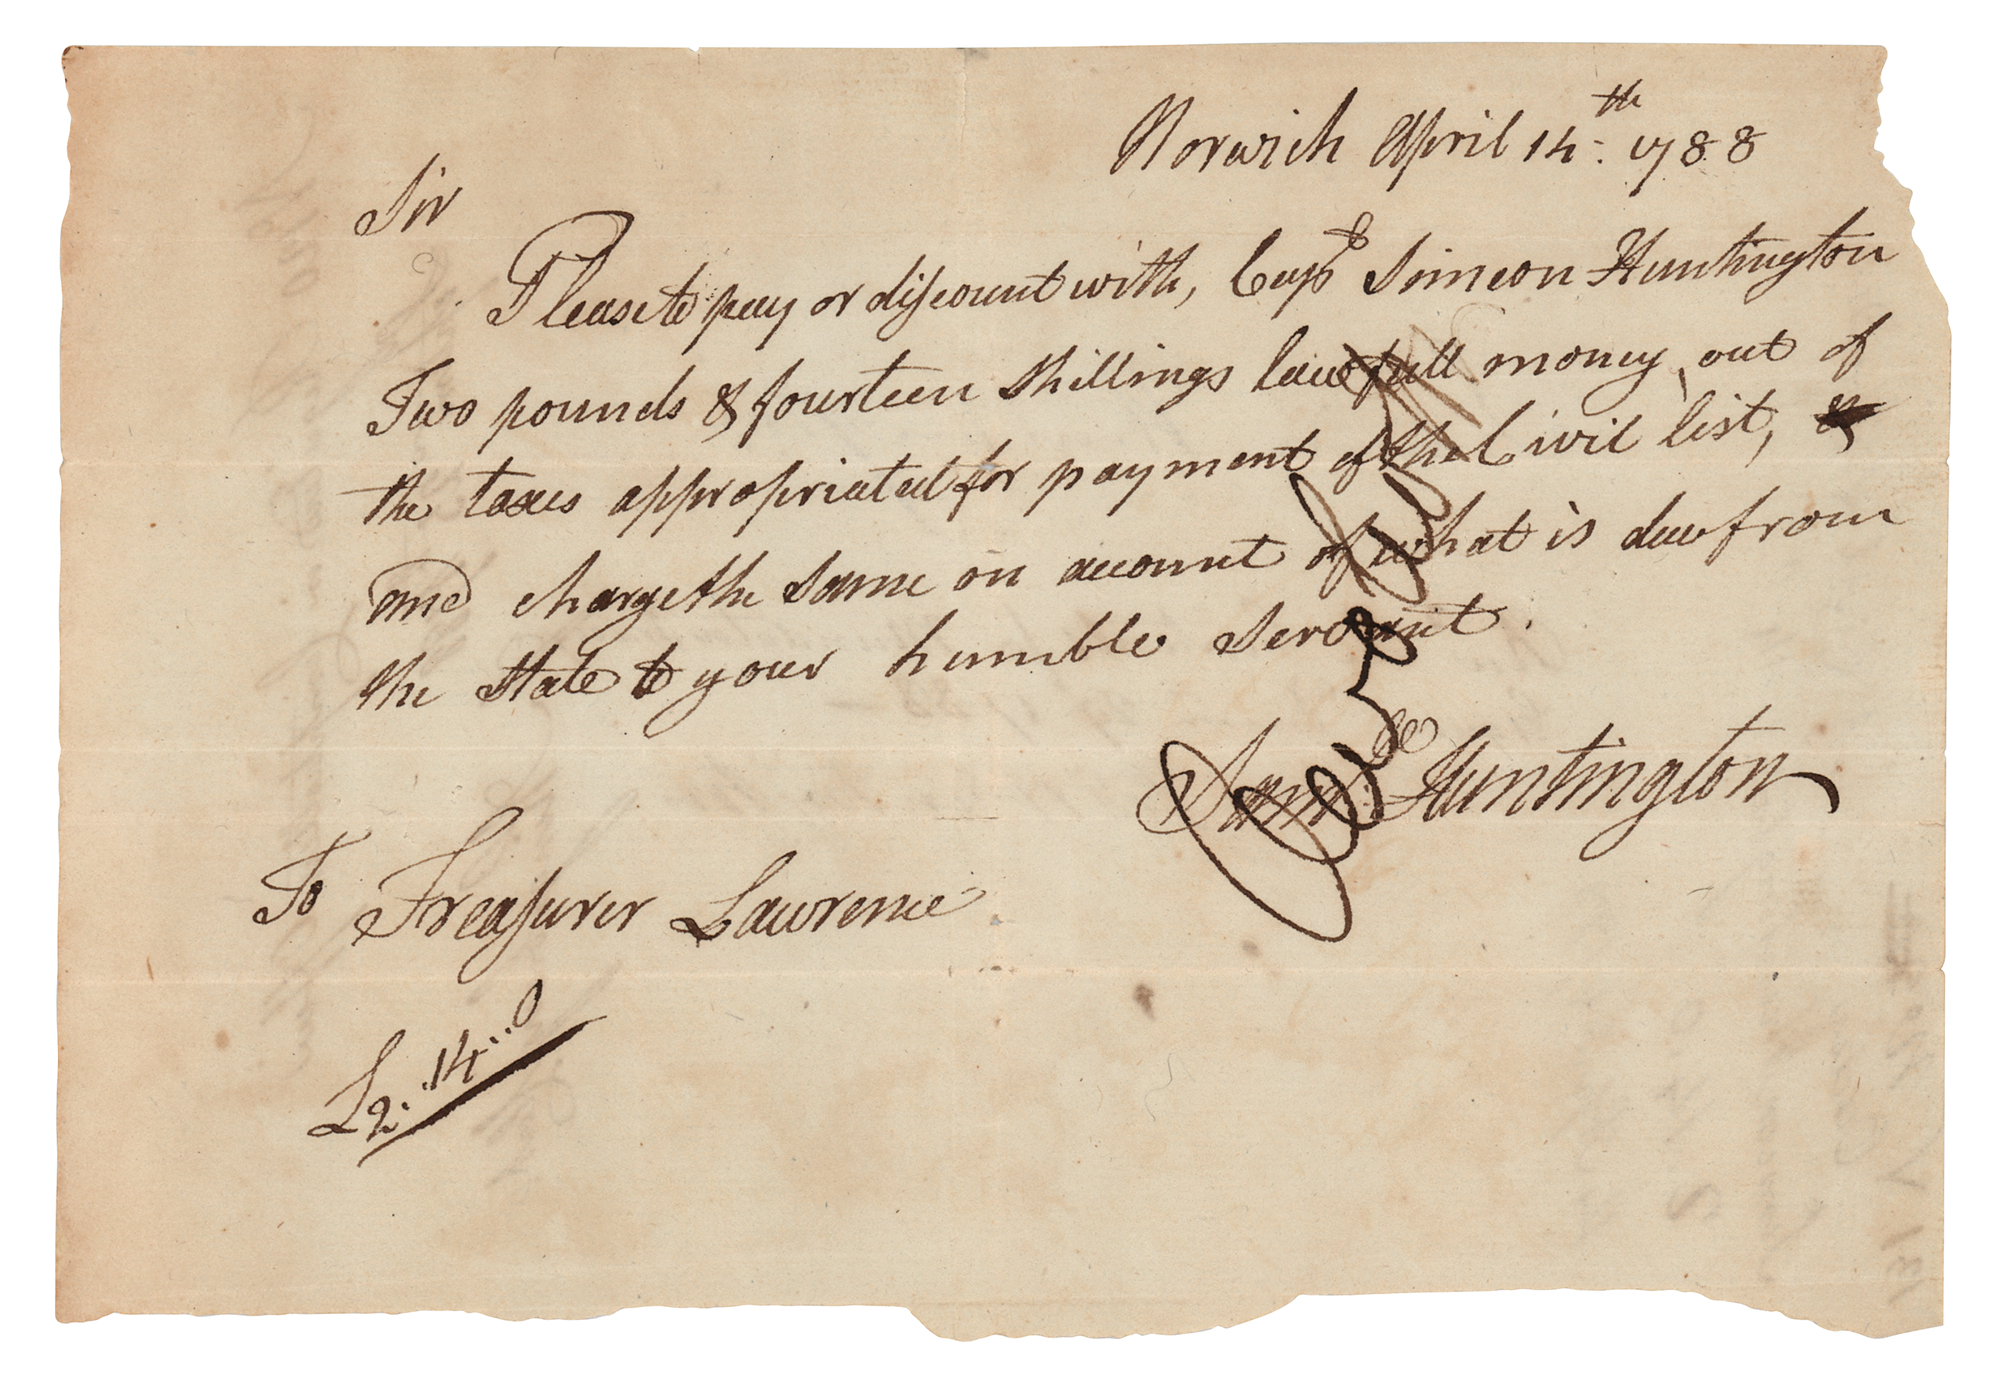 Norwich April 14th. 1788
Sir
Please to pay or discount with, Capt Simeon Huntington
Two pounds & fourteen shillings lawfull money, out of
the taxes appropriated for payment of the Civil list,
and charge the same on account of what is due from
the State to your humble Servant.
Saml Huntington
To Treasurer Lawrence
L2..14..0